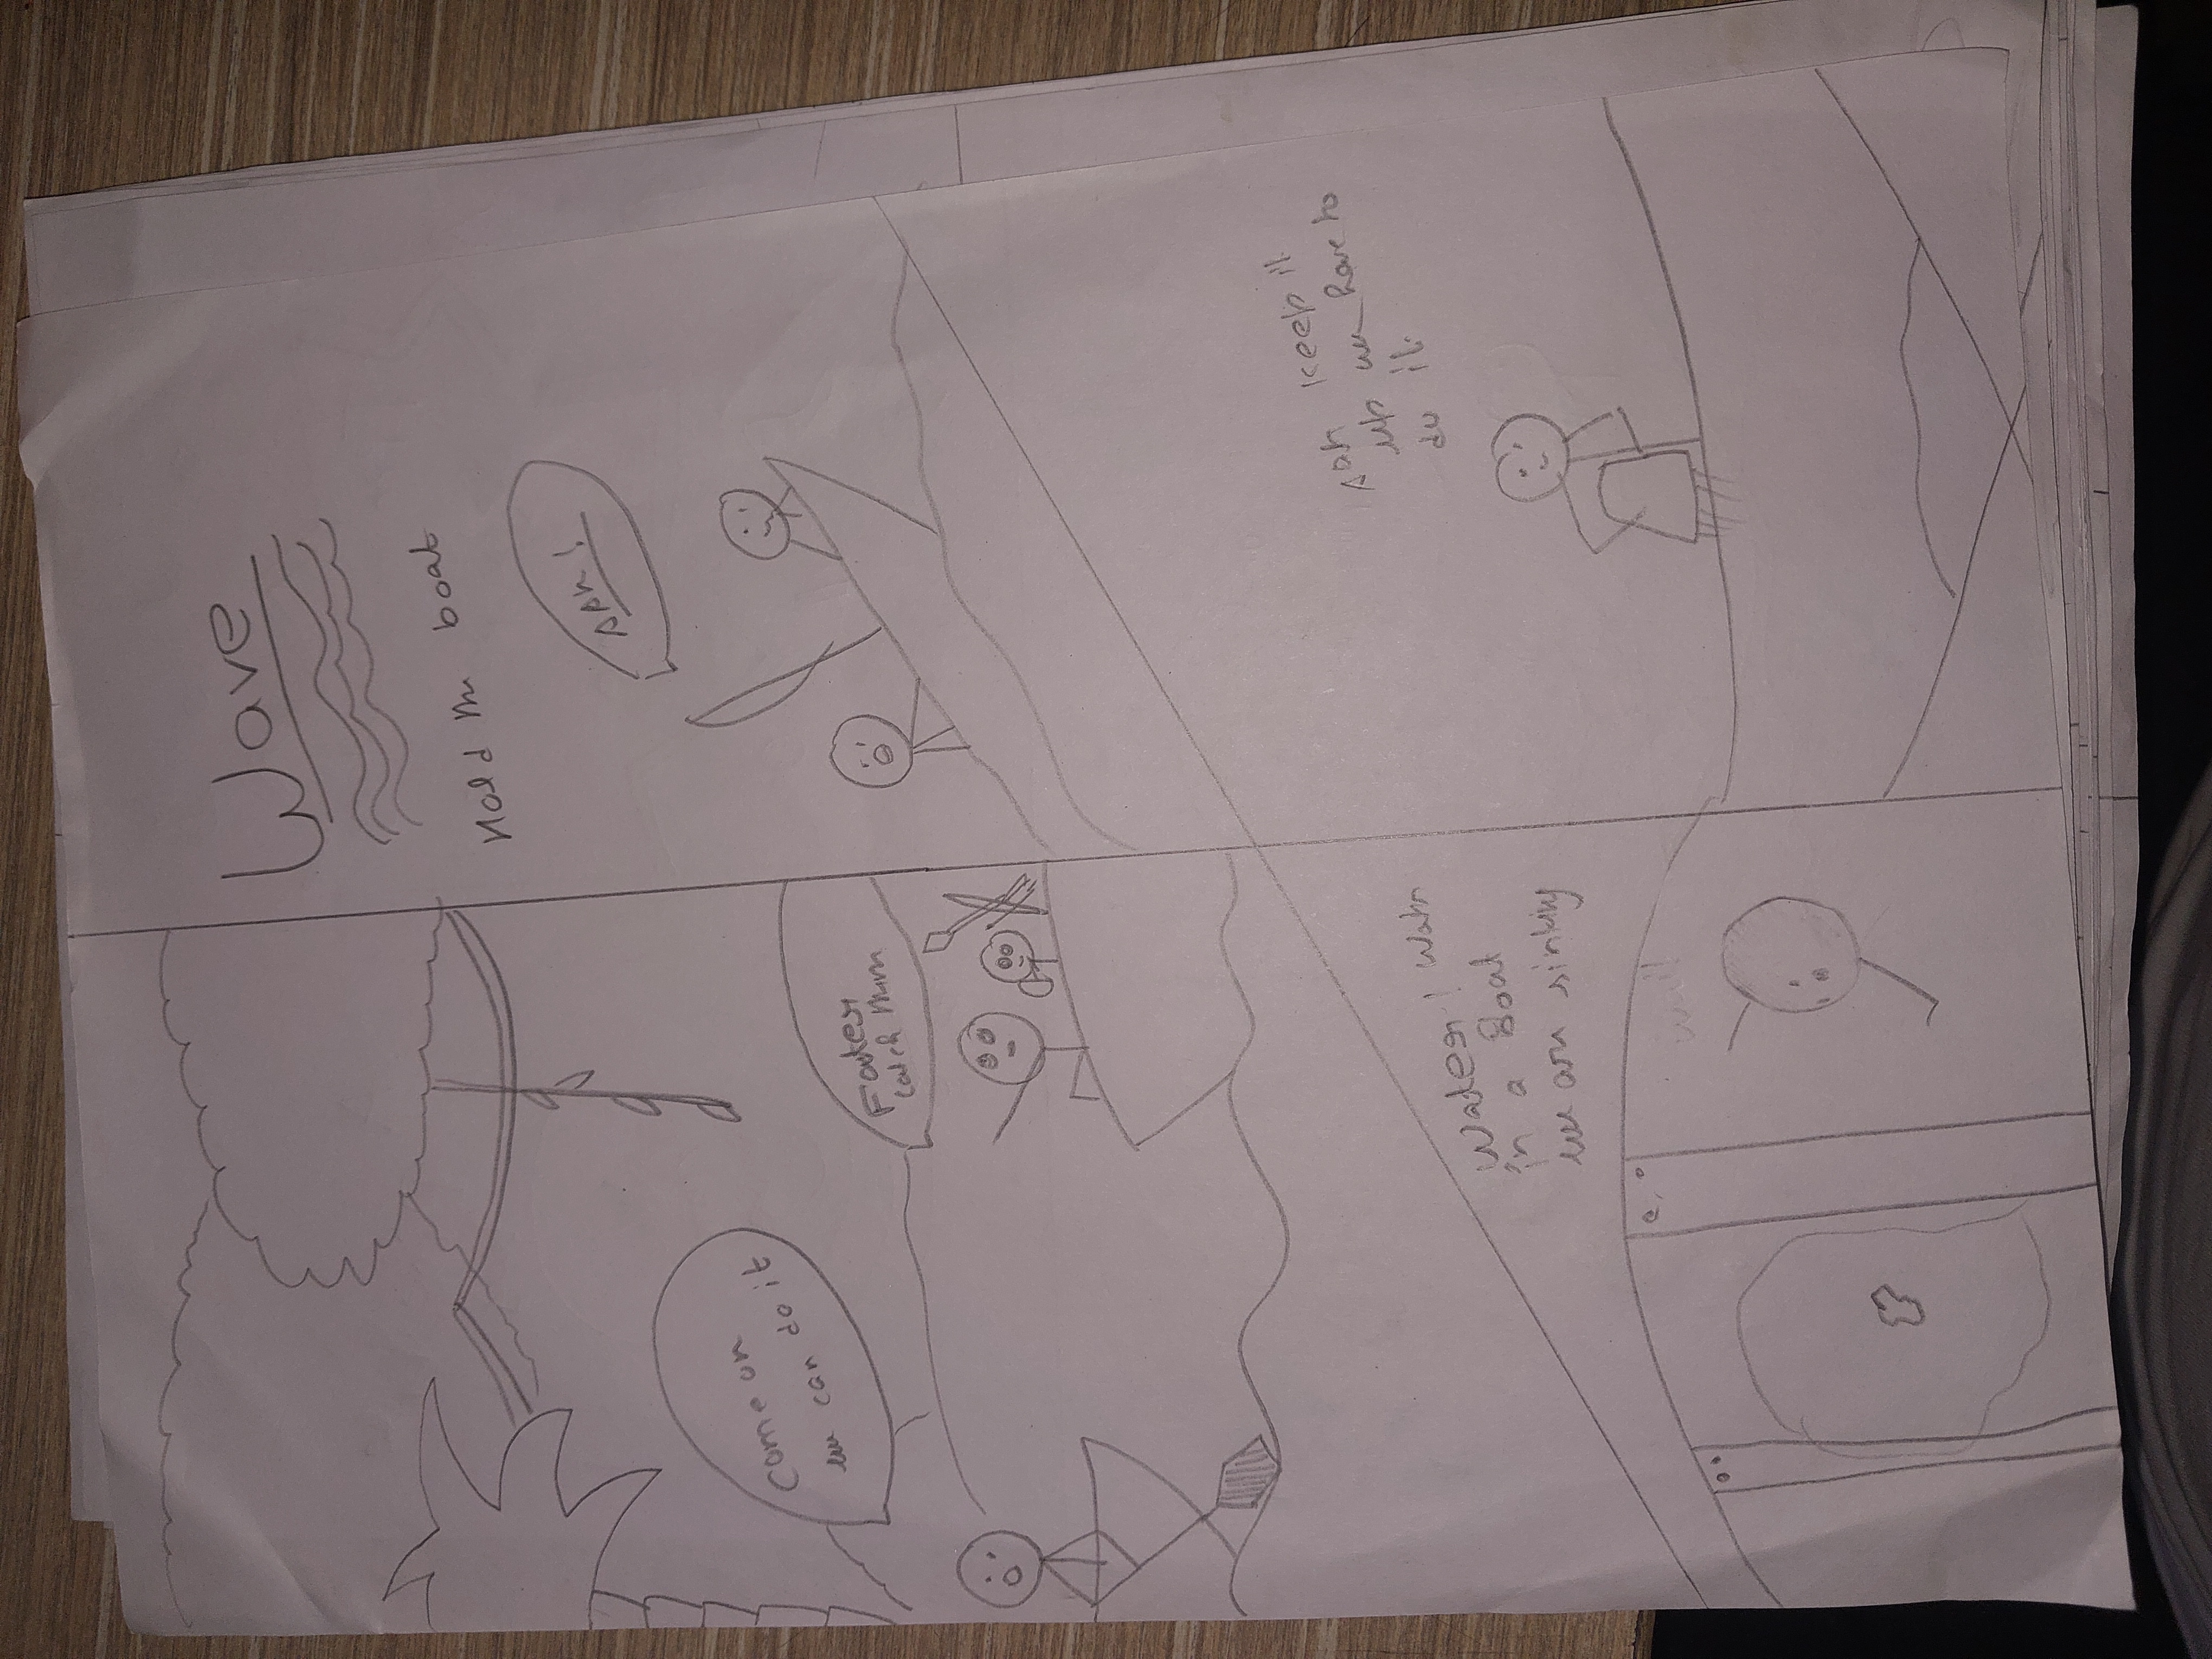 Come on
we can do it
Faster
catch them
Wave
Hold the boat
Water! Water
in a Boat
we are sinking
keep it
up we have to
do it